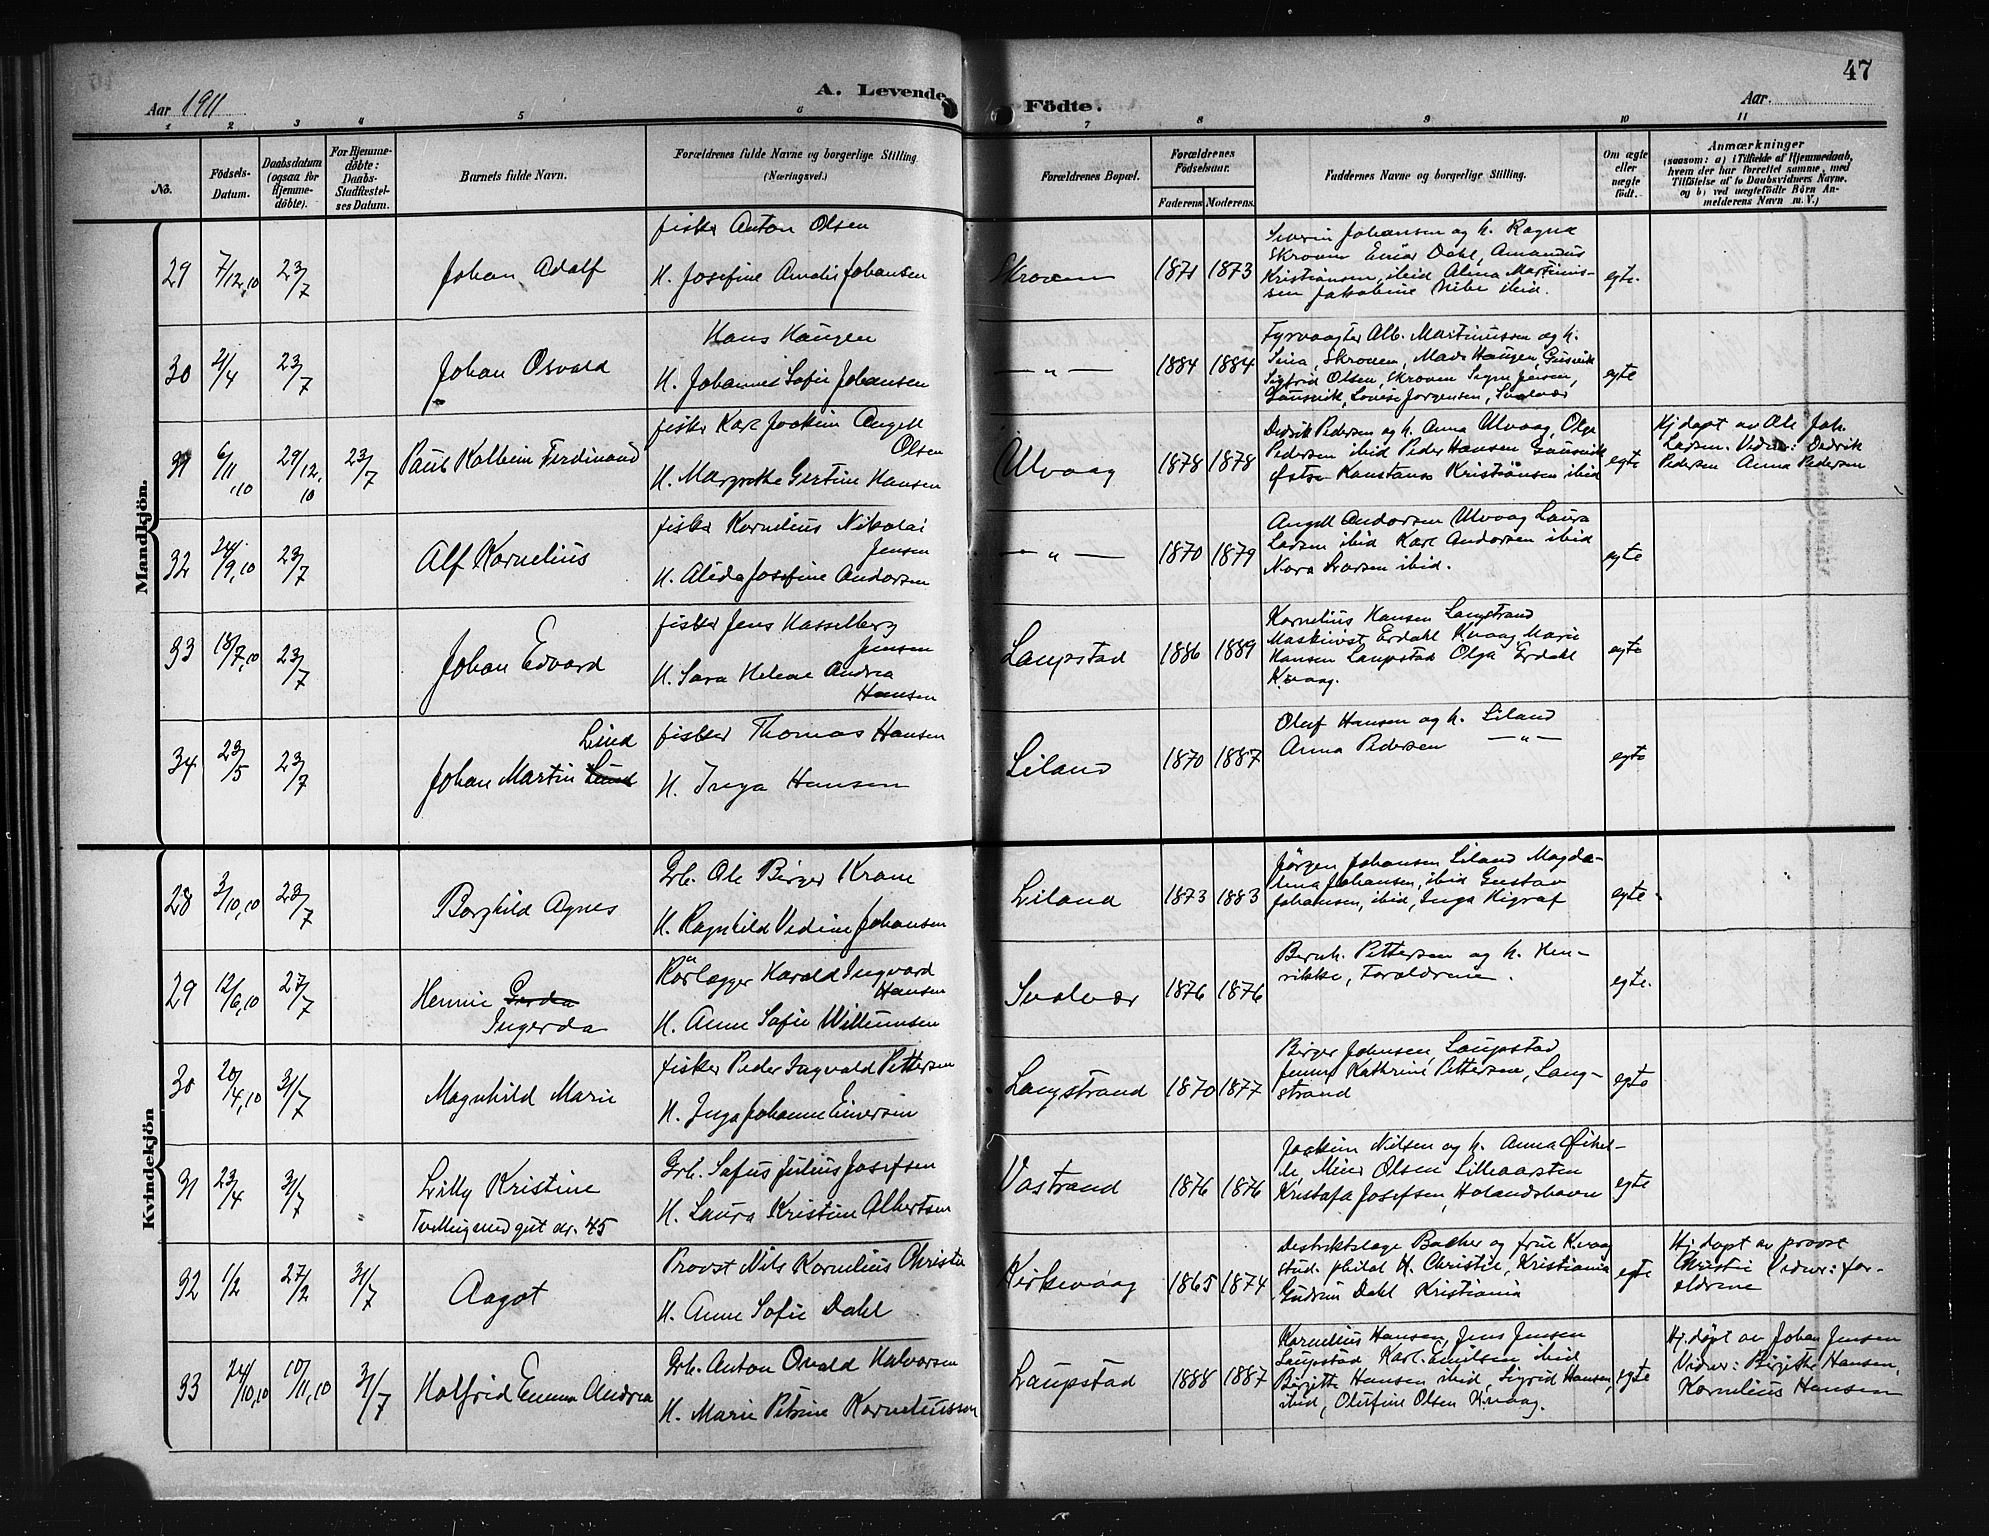 47
Aar 1911
A. Levende Födte.
Aar.
1 2 3 4 5 6 7 8 9 10 11
No.
Födsels-Datum.
Daabsdatum (ogsaa for Hjemme-döbte).
For Hjemme-döbte: Daabs-Stadfæstel-ses Datum.
Barnets fulde Navn.
Forældrenes fulde Navne og borgerlige Stilling. (Næringsvei.)
Forældrenes Bopæl.
Forældrenes Födselsaar.
Faderens Moderens.
Faddernes Navne og borgerlige Stilling.
Om ægte eller uægte födt.
Anmærkninger
(saasom: a) i Tilfælde af Hjemmedaab, hvem der har forrettet samme, med Tilföielse af to Daabsvidners Navne, og b) ved uægtefödte Börn An-melderens Navn m. V.)
Mandkjön.
29 7/12,10 23/7 Johan Adolf
fisker Anton Olsen
H. Josefine Amalie Johansen
Skroven 1871 1873
Severin Johansen og h. Ragna
Skroven Einar Dahl, Amandus
Kristiansen, ibid Alma Martinis-
sen Jakobine Nibe ibid.
egte.
30 2/4 23/7 Johan Osvald
Hans Haugen
H. Johannes Sofie Johansen
— " — 1884 1884
Fyrvaagter Alb. Martinussen og h.
Sina, Skroven, Mads Haugen Gunsvik
Sigfrid Olsen, Skroven Signe Jensen,
Gunsvik, Lovise Jorgensen, Svolvær
egte
31 6/11,10 29/12,10 23/7 Paul Kolbein Ferdinand
fisker Karl Joakim Angell
Olsen
H. Margrethe Gertine Hansen
Ulvaag 1878 1878
Didrik Pedersen og h. Anna Ulvaag, Olga
Pedersen ibid Peder Hansen Gunsvik
Østse Konstanse Kristiansen ibid
egte
Hj døpt av Ole Joh.
Larsen. Vidner: Didrik
Pedersen Anna Pedersen
32 24/9,10 23/7 Alf Kornelius
fisker Kornelius Nikolai
Jensen
H. Alida Josefine Andorsen
— " — 1870 1879
Angell Andorsen Ulvaag Laura
Larsen ibid Karl Andorsen ibid
Nora Larsen ibid.
egte
33 18/7,10 23/7 Johan Edvard
fisker Jens Hasselberg
Jensen
H. Sara Helene Andrea
Hansen
Laupstad 1886 1889
Kornelius Hansen Langstrand
Maskinist Erdahl Kvaag, Marie
Hansen Laupstad Olga Erdahl
Kvaag.
egte
34 23/5 23/7 Johan Martin Lund
Lind
fisker Thomas Hansen
H. Inga Hansen
Liland 1870 1887
Oluf Hansen og h. Liland
Anna Pedersen — " —
egte
Kvindekjön
28 3/10,10 23/7 Borghild Agnes
Grb. Ole Birger Krane
H. Ragnhild Vedine Johansen
Liland 1873 1883
Jörgen Johansen Liland Magda-
lena Johansen, ibid Gustav
Johansen, ibid, Inga Higraf
egte.
29 12/6,10 27/7 Hennie Gerda
Ingerda
Rörlægger Harald Ingvard
Hansen
H. Anne Sofie Willumsen
Svolvær 1876 1876
Bernh. Pettersen og h. Hen-
rikke, Forældrene.
egte.
30 20/4,10 31/7 Magnhild Marie
fisker Peder Ingvald Pettersen
H. Inga Johanne Einersen
Langstrand 1870 1877
Birger Johnsen, Laupstad
Jenny Kathrine Pettersen, Lang-
strand
egte
31 23/4 31/7 Lilly Kristine
Tvilling med gut nr. 45
Grb. Sofus Julius Josefsen
H. Laura Kristine Albertsen
Vastrand 1876 1876
Joakim Nilsen og h. Anna
Olsen Lilleaarsten
Kristofa Josefsen, Holandshavn
egte
32 1/2 27/2 31/7 Aagot
Provst Nils Kornelius Christie
H. Anne Sofie Dahl
Kirkevaag 1865 1874
Destriktslæge Bacher og frue Kvaag
stud. philol H. Christie, Kristiania
Gudrun Dahl Kristiania
egte
Hj døpt av provst
Christie Vidner: for-
ældrene
33 24/10,10 10/11,10 31/7 Halfrid Emma Andrea
Grb. Anton Ovald Halvorsen
H. Marie Petrine Korneliussen
Laupstad 1888 1887
Kornelius Hansen, Jens Jensen
Laupstad Karl Emilsen ibid
Birgitte Hansen ibid, Sigrid Hansen,
ibid, Olufine Olsen Kvaag.
egte
Hj. døpt av Johan Jensen
Vidner: Birgitte Hansen,
Kornelius Hansen